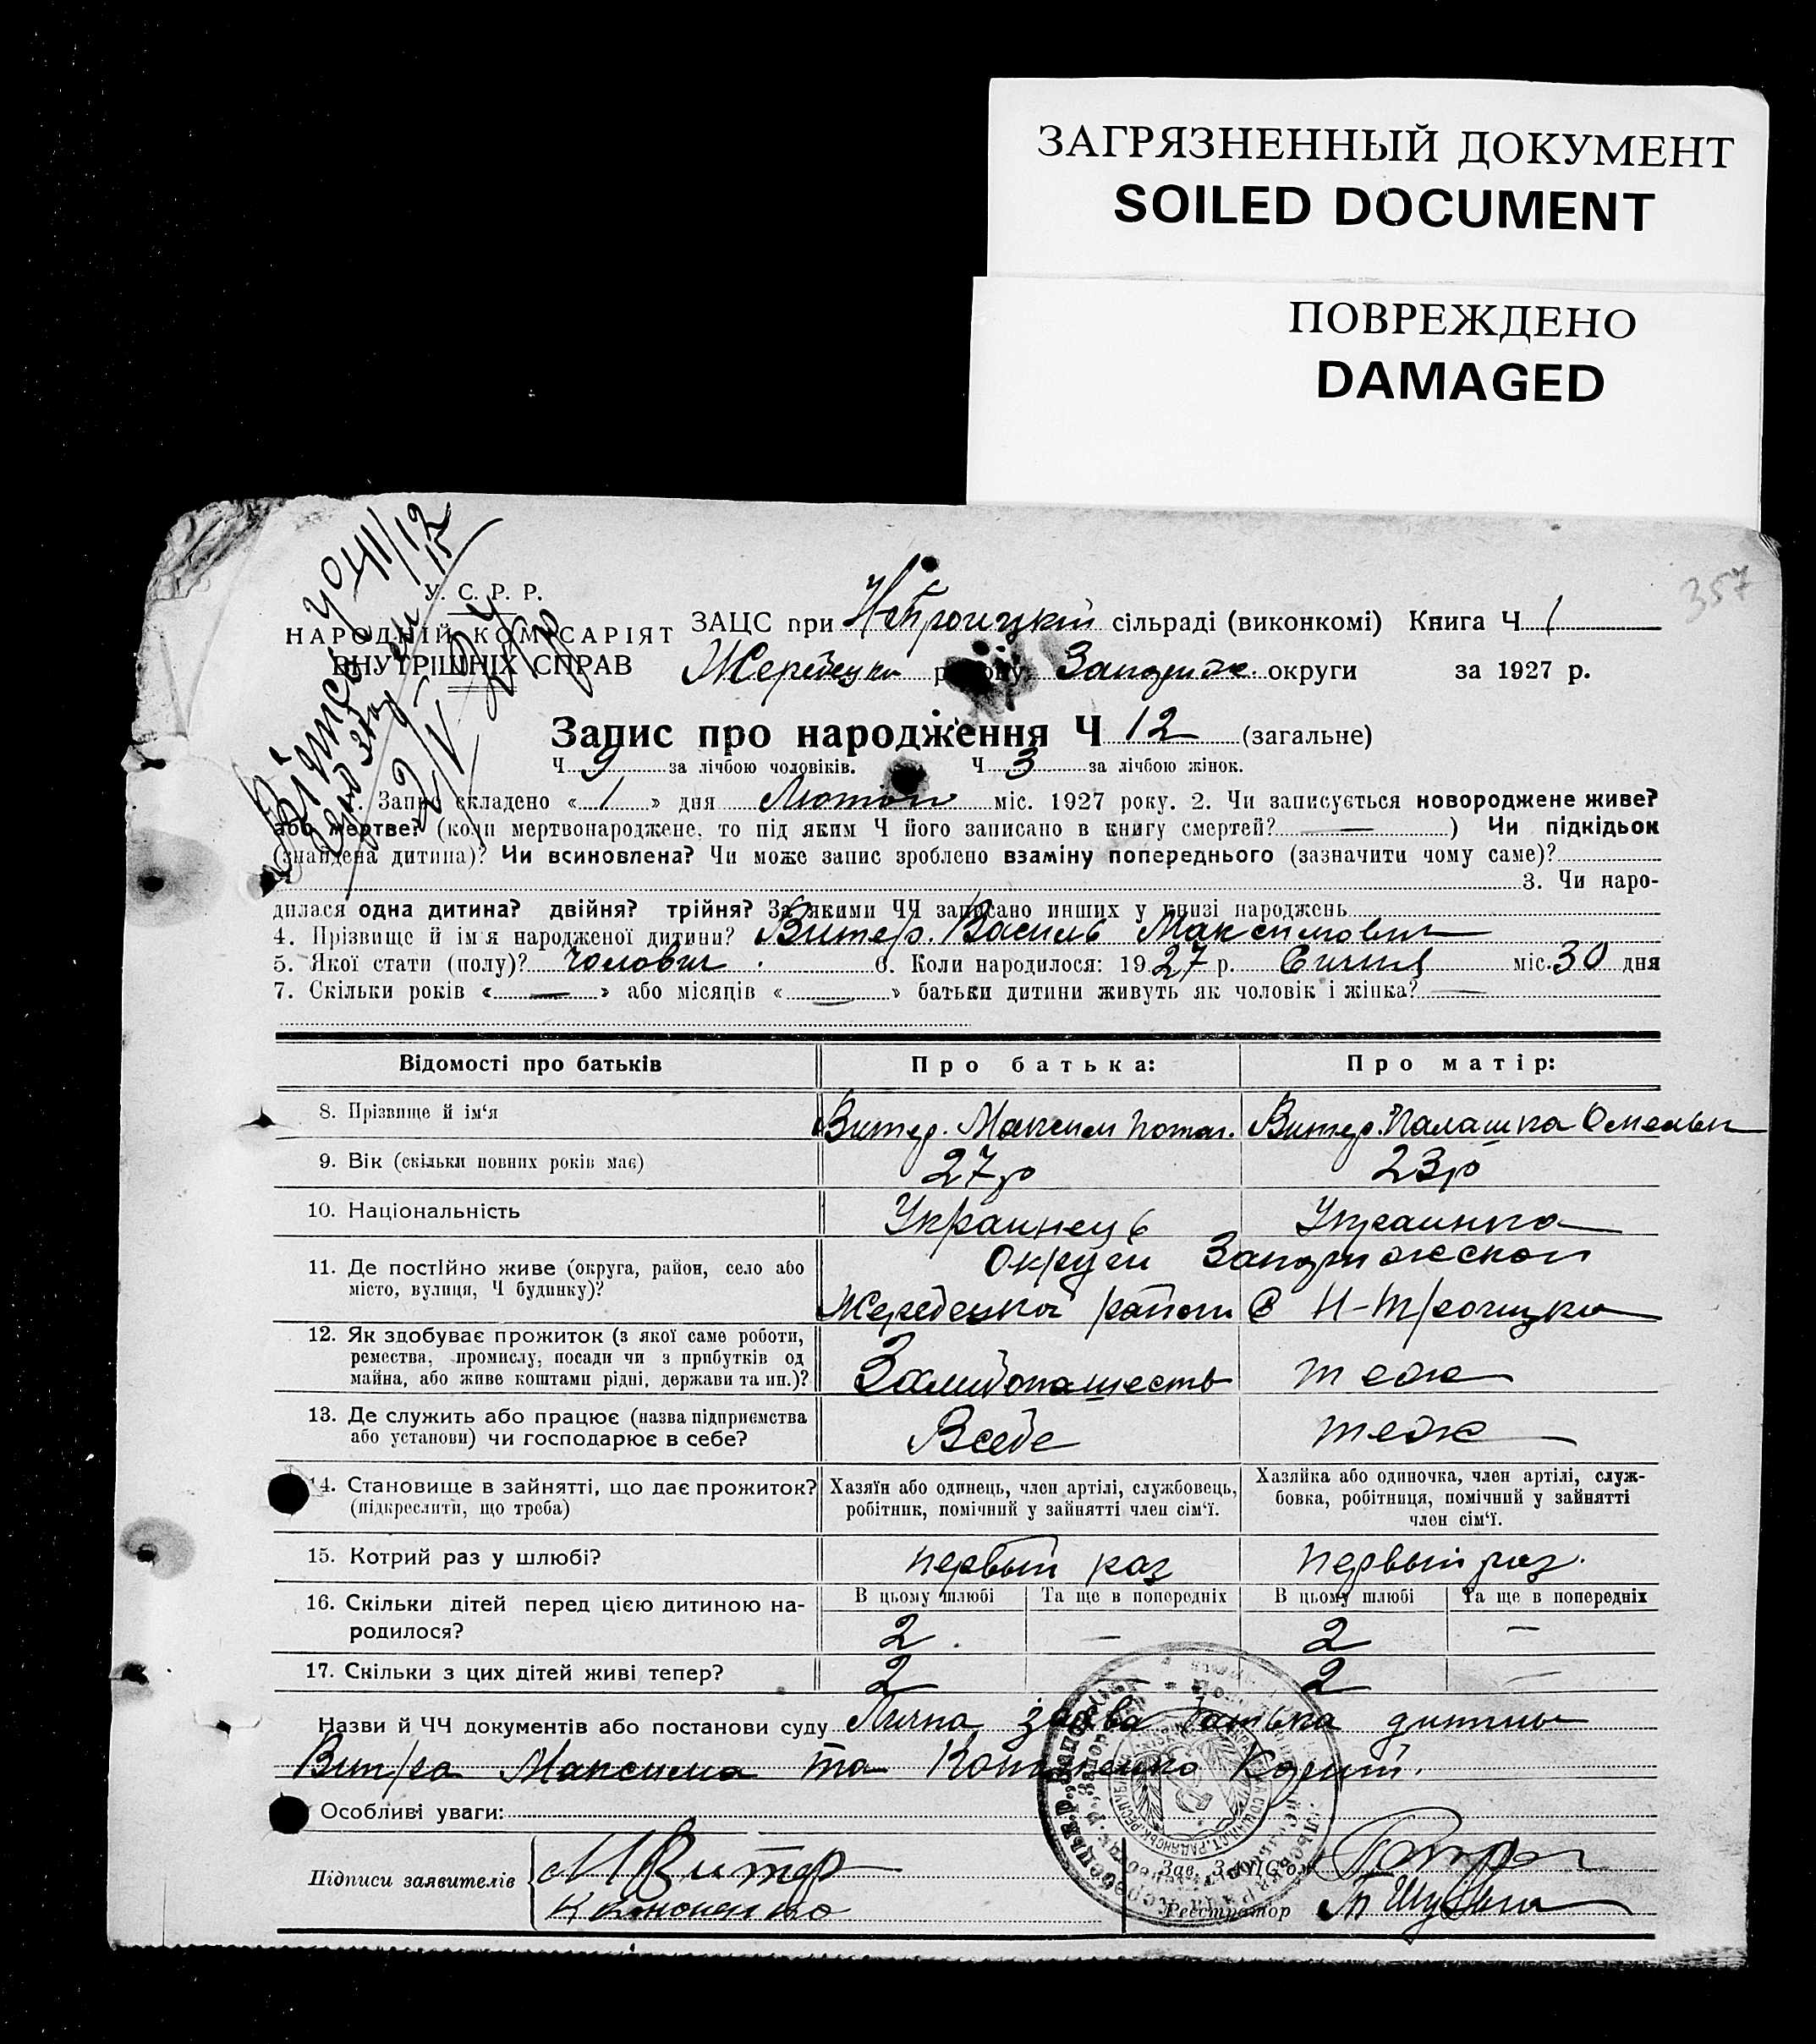 ЗАГРЯЗНЕННЫЙ ДОКУМЕНТ
SOILED DOCUMENT
ПОВРЕЖДЕНО
DAMAGED
357
У. С. Р. Р.
НАРОДНІЙ КОМІСАРІЯТ
ВНУТРІШНІХ СПРАВ
ЗАЦС при Н-Троицкій сільраді (виконкомі) Книга Ч 1
Жеребецко району округи за 1927 р.
Запис про народження Ч 12 (загальне)
Ч 9 за лічбою чоловіків. Ч 3 за лічбою жінок.
1. Запис складено « 1 » дня міс. 1927 року. 2. Чи записується новороджене живе?
або мертве? (коли мертвонароджене, то під яким Ч його записано в книгу смертей? — ) Чи підкідьок
(знайдена дитина)? Чи всиновлена? Чи може запис зроблено взаміну попереднього (зазначити чому саме)?
3. Чи наро-
дилася одна дитина? двійня? трійня? За якими ЧЧ записано инших у книзі народжень
4. Прізвище й ім'я народженої дитини? Витер. Василь Максимович
5. Якої стати (полу)? чолович. 6. Коли народилося: 1927 р. Сичня міс. 30 дня
7. Скільки років « — » або місяців « — » батьки дитини живуть як чоловік і жінка? —
Відомості про батьків Про батька: Про матір:
8. Прізвище й ім'я Витер. Максим Потап. Витер. Палашка Омельян
9. Вік (скільки повних років має) 27 р 23 р
10. Національність Украинець Украинка
11. Де постійно живе (округа, район, село або Округи
місто, вулиця, Ч будинку)? Жеребецкой район С Н-Троицко
12. Як здобуває прожиток (з якої саме роботи,
ремества, промислу, посади чи з прибутків од
майна, або живе коштами рідні, держави та ин.)? теж
13. Де служить або працює (назва підприємства
або установи) чи господарює в себе? Всебе теж
14. Становище в зайнятті, що дає прожиток? Хазяїн або одинець, член артілі, службовець, Хазяйка або одиночка, член артілі, служ-
(підкреслити, що треба) робітник, помічний у зайнятті член сім'ї. бовка, робітниця, помічний у зайнятті
член сім'ї.
15. Котрий раз у шлюбі? первый раз первый раз.
16. Скільки дітей перед цією дитиною на- В цьому шлюбі Та ще в попередніх В цьому шлюбі Та ще в попередніх
родилося? 2. — 2 —
17. Скільки з цих дітей живі тепер? 2 2 —
Назви й ЧЧ документів або постанови суду Лична заява батька дитины
Витра Максима та Кононенко
Особливі уваги:
Підписи заявителів М Витер Зав. ЗАЦС'ом
К Кононенко Реєстратор